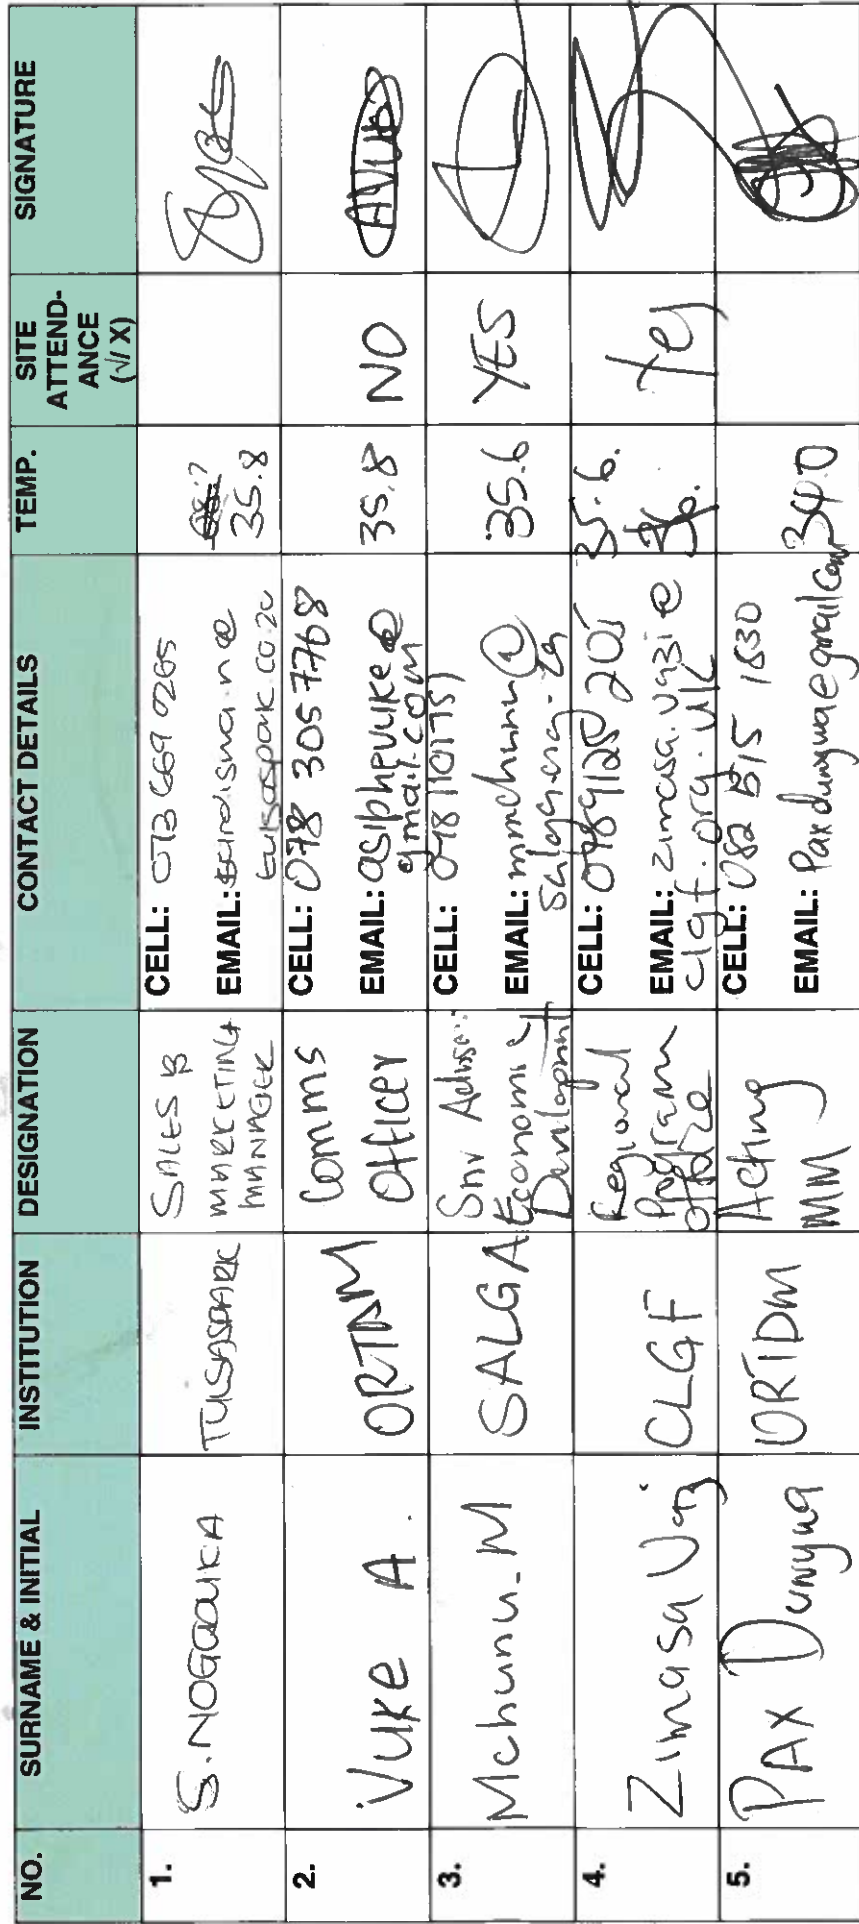 NO. SURNAME & INITIAL INSTITUTION DESIGNATION CONTACT DETAILS TEMP. SITE ATTEND-ANCE (√/ X) SIGNATURE
1.
S. NOGQALKA
TULSASPARK
SALES &
MARKETING
MANAGER
CELL: 073 669 0265
EMAIL:
tulsaspark.co.za
35.8
2.
Vuke A.
ORTDM
Comms
Officer
CELL: 078 305 7768
EMAIL: asiphevuke@
gmail.com
35.8
NO
AVuke
3.
Mchunu. M
SALGA
Snr Advisor:
Economic
Development
CELL: 0781101751
EMAIL: mmchunu@
salga.org.za
35.6
YES
4.
Zimasa Vazi
CLGF
Regional
Program
Office
CELL: 0789128 205
EMAIL: zimasa.vazi@
clgf.org.uk
35.6.
36.
Yes
5.
PAX Dunywa
ORTDM
Acting
MM
CELL: 082 515 1830
EMAIL: Paxdunywa@gmail.com
34.0